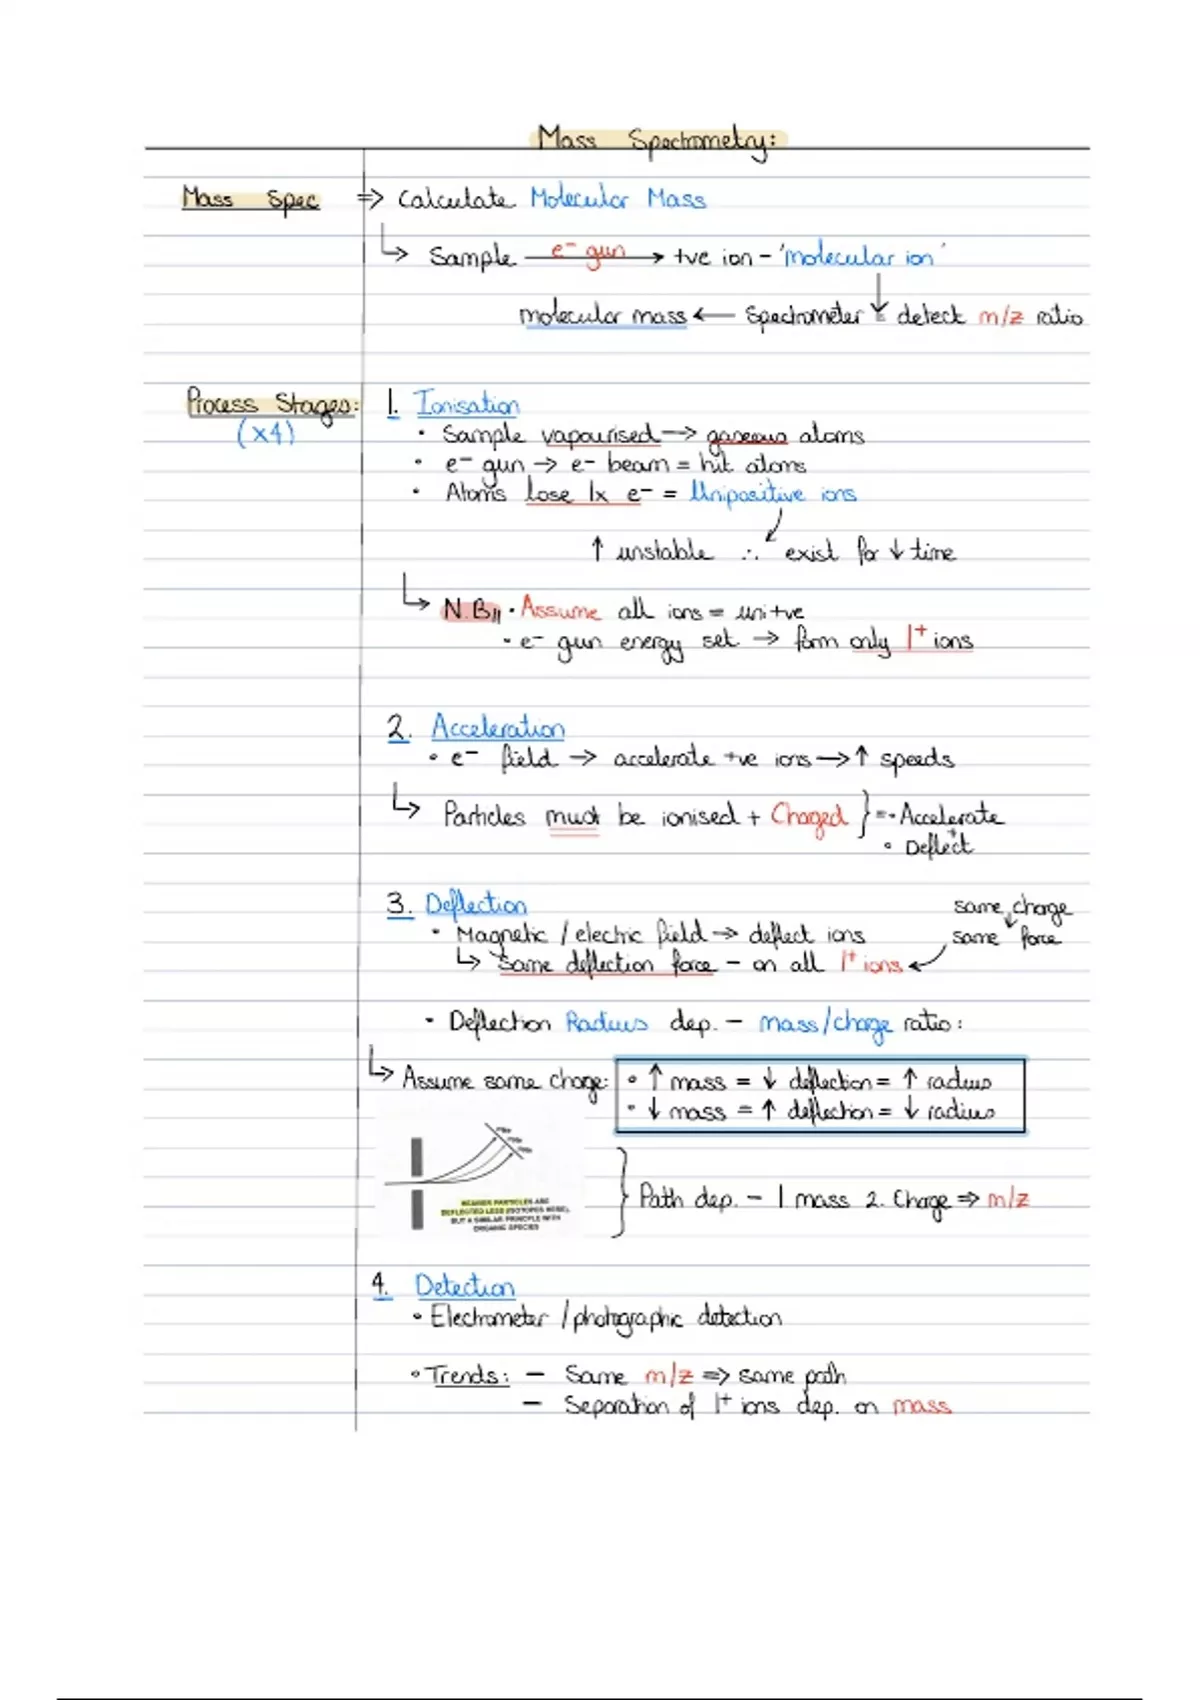 Mass Spectrometry:
Mass Spec => Calculate Molecular Mass
↳ Sample e⁻ gun → +ve ion - 'molecular ion'
molecular mass ← Spectrometer = detect m/z ratio
Process Stages: 1. Ionisation
(x4) • Sample vapourised → gaseous atoms
• e⁻ gun → e- beam = hit atoms
• Atoms lose 1x e- = Unipositive ions
↑ unstable ∴ exist for ↓ time
↳ N.B,, • Assume all ions = uni+ve
• e⁻ gun energy set → form only 1⁺ ions
2. Acceleration
• e⁻ field → accelerate +ve ions → ↑ speeds
↳ Particles must be ionised + Charged } = • Accelerate
+
• Deflect
3. Deflection
same charge
• Magnetic / electric field → deflect ions
same force
↳ Same deflection force - on all 1⁺ ions
• Deflection Radius dep. - mass/charge ratio:
↳ Assume same charge: • ↑ mass = ↓ deflection = ↑ radius
• ↓ mass = ↑ deflection = ↓ radius
HEAVIER PARTICLES ARE
DEFLECTED LESS (ISOTOPES HERE),
BUT A SIMILAR PRINCIPLE WITH
ORGANIC SPECIES
} Path dep. - 1. mass 2. Charge => m/z
4. Detection
• Electrometer / photographic detection
• Trends: - Same m/z => same path
- Separation of 1⁺ ions dep. on mass